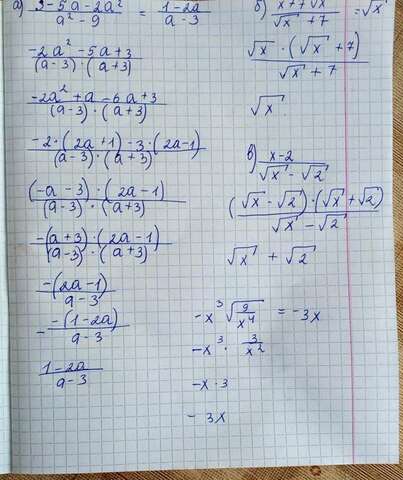 а) 3-5a-2a² / a²-9 = 1-2a / a-3
-2a²-5a+3 / (a-3)·(a+3)
-2a²+a-6a+3 / (a-3)·(a+3)
-2·(2a+1)-3·(2a-1) / (a-3)·(a+3)
(-a-3)·(2a-1) / (a-3)·(a+3)
-(a+3)·(2a-1) / (a-3)·(a+3)
-(2a-1) / a-3
- -(1-2a) / a-3
1-2a / a-3
б) x+7√x / √x+7 = √x
√x·(√x+7) / √x+7
√x
в) x-2 / √x-√2
(√x-√2)·(√x+√2) / √x-√2
√x+√2
-x³√(9/x⁴) = -3x
-x³·3/x²
-x·3
-3x